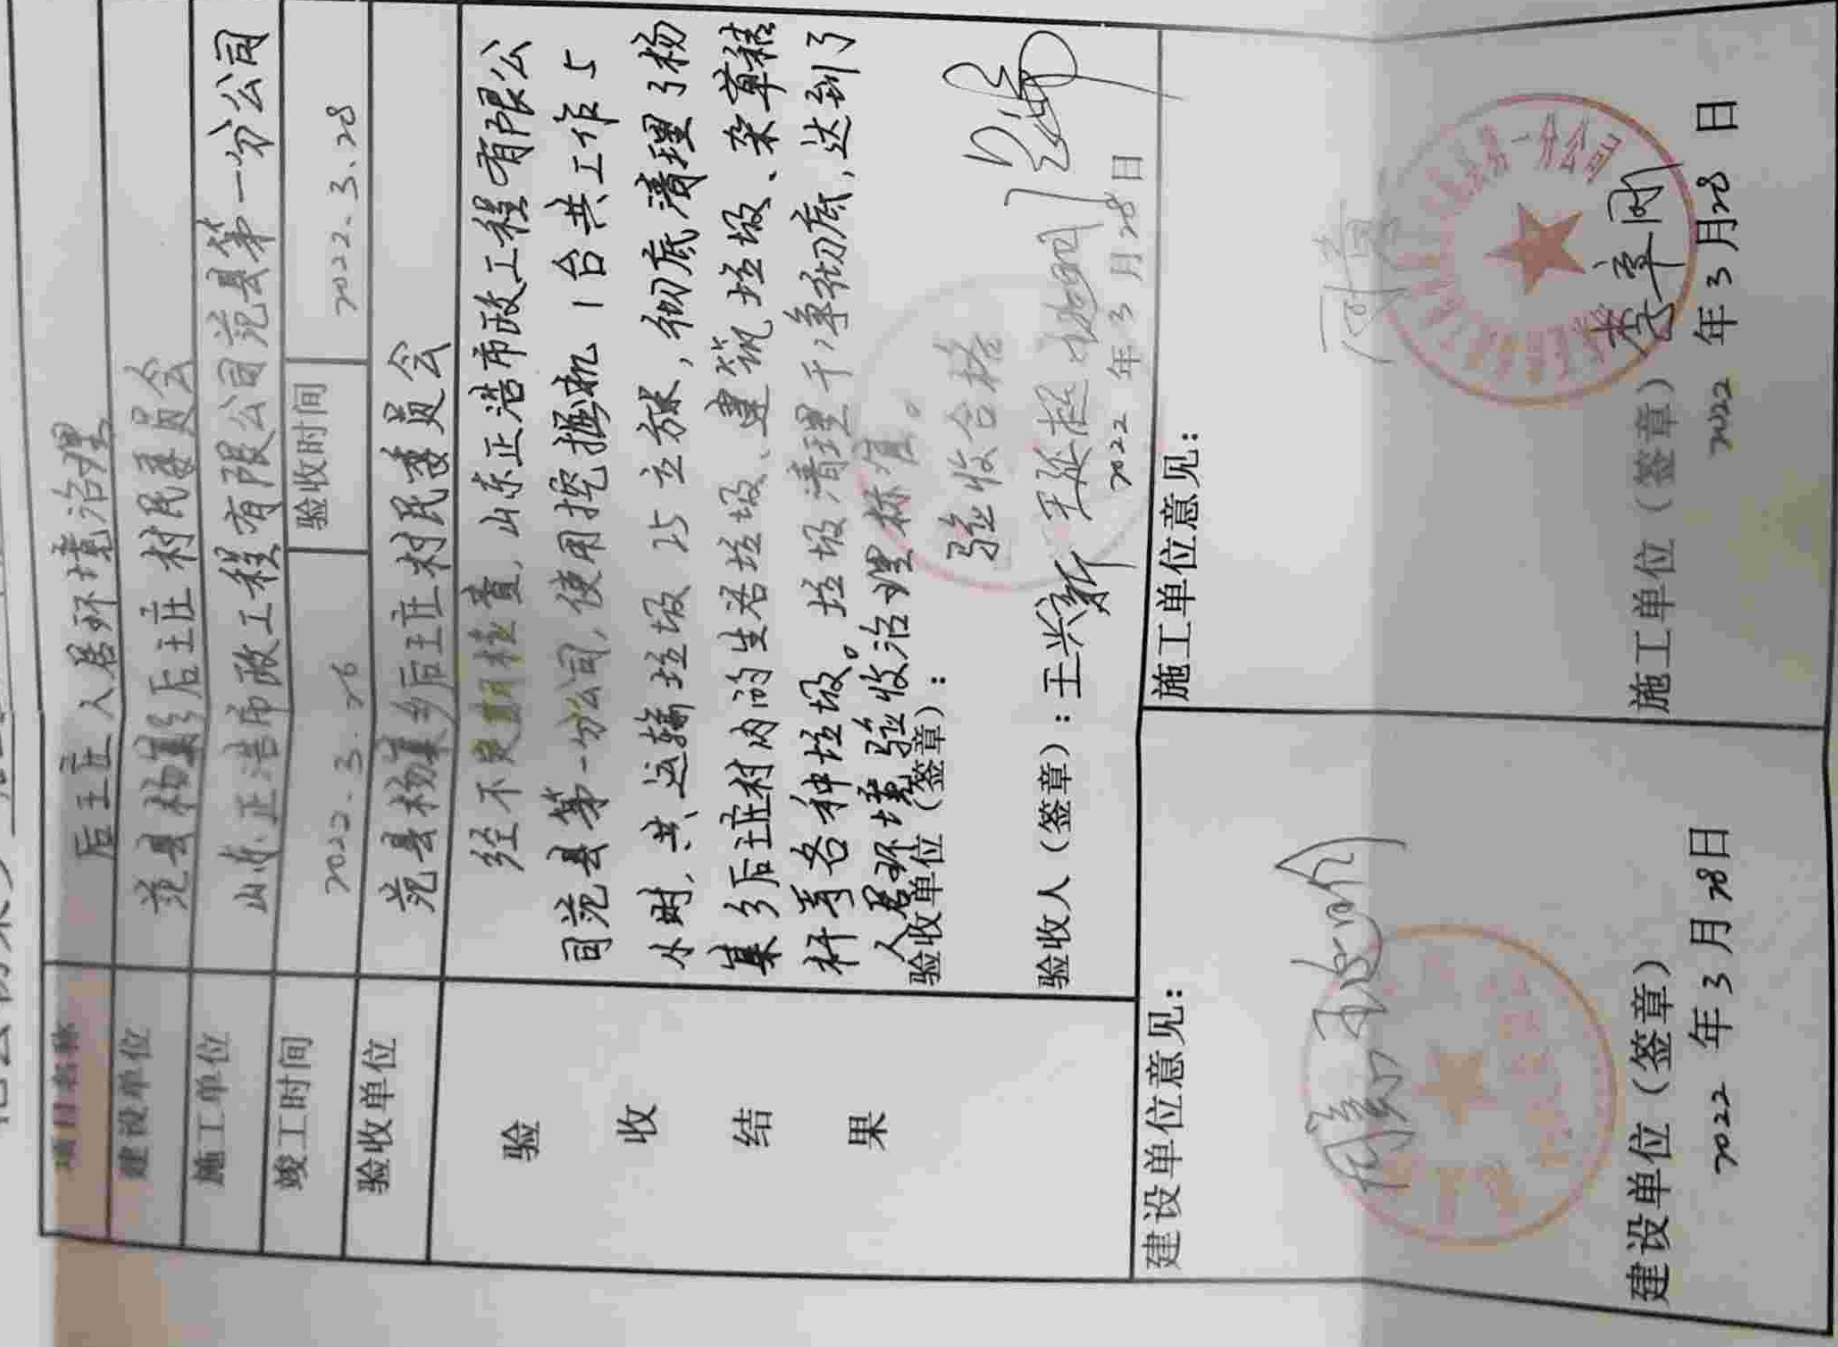 项目名称 后王庄人居环境治理
建设单位 范县杨集乡后王庄村民委员会
施工单位 山东正浩市政工程有限公司范县第一分公司
竣工时间 2022.3.26 验收时间 2022.3.28
验收单位 范县杨集乡后王庄村民委员会
验收结果
经不定期检查,山东正浩市政工程有限公
司范县第一分公司,使用挖掘机1台共工作5
小时,共运输垃圾25立方米,彻底清理了杨
集乡后王庄村内的生活垃圾、建筑垃圾、杂草秸
秆等各种垃圾。垃圾清理干净彻底,达到了
人居环境验收治理标准。
验收单位(签章):
验收合格
验收人(签章):王兴新
2022年3月28日
建设单位意见:
同意
建设单位(签章)
2022年3月28日
施工单位意见:
同意
第一分公司
施工单位(签章)
2022年3月28日